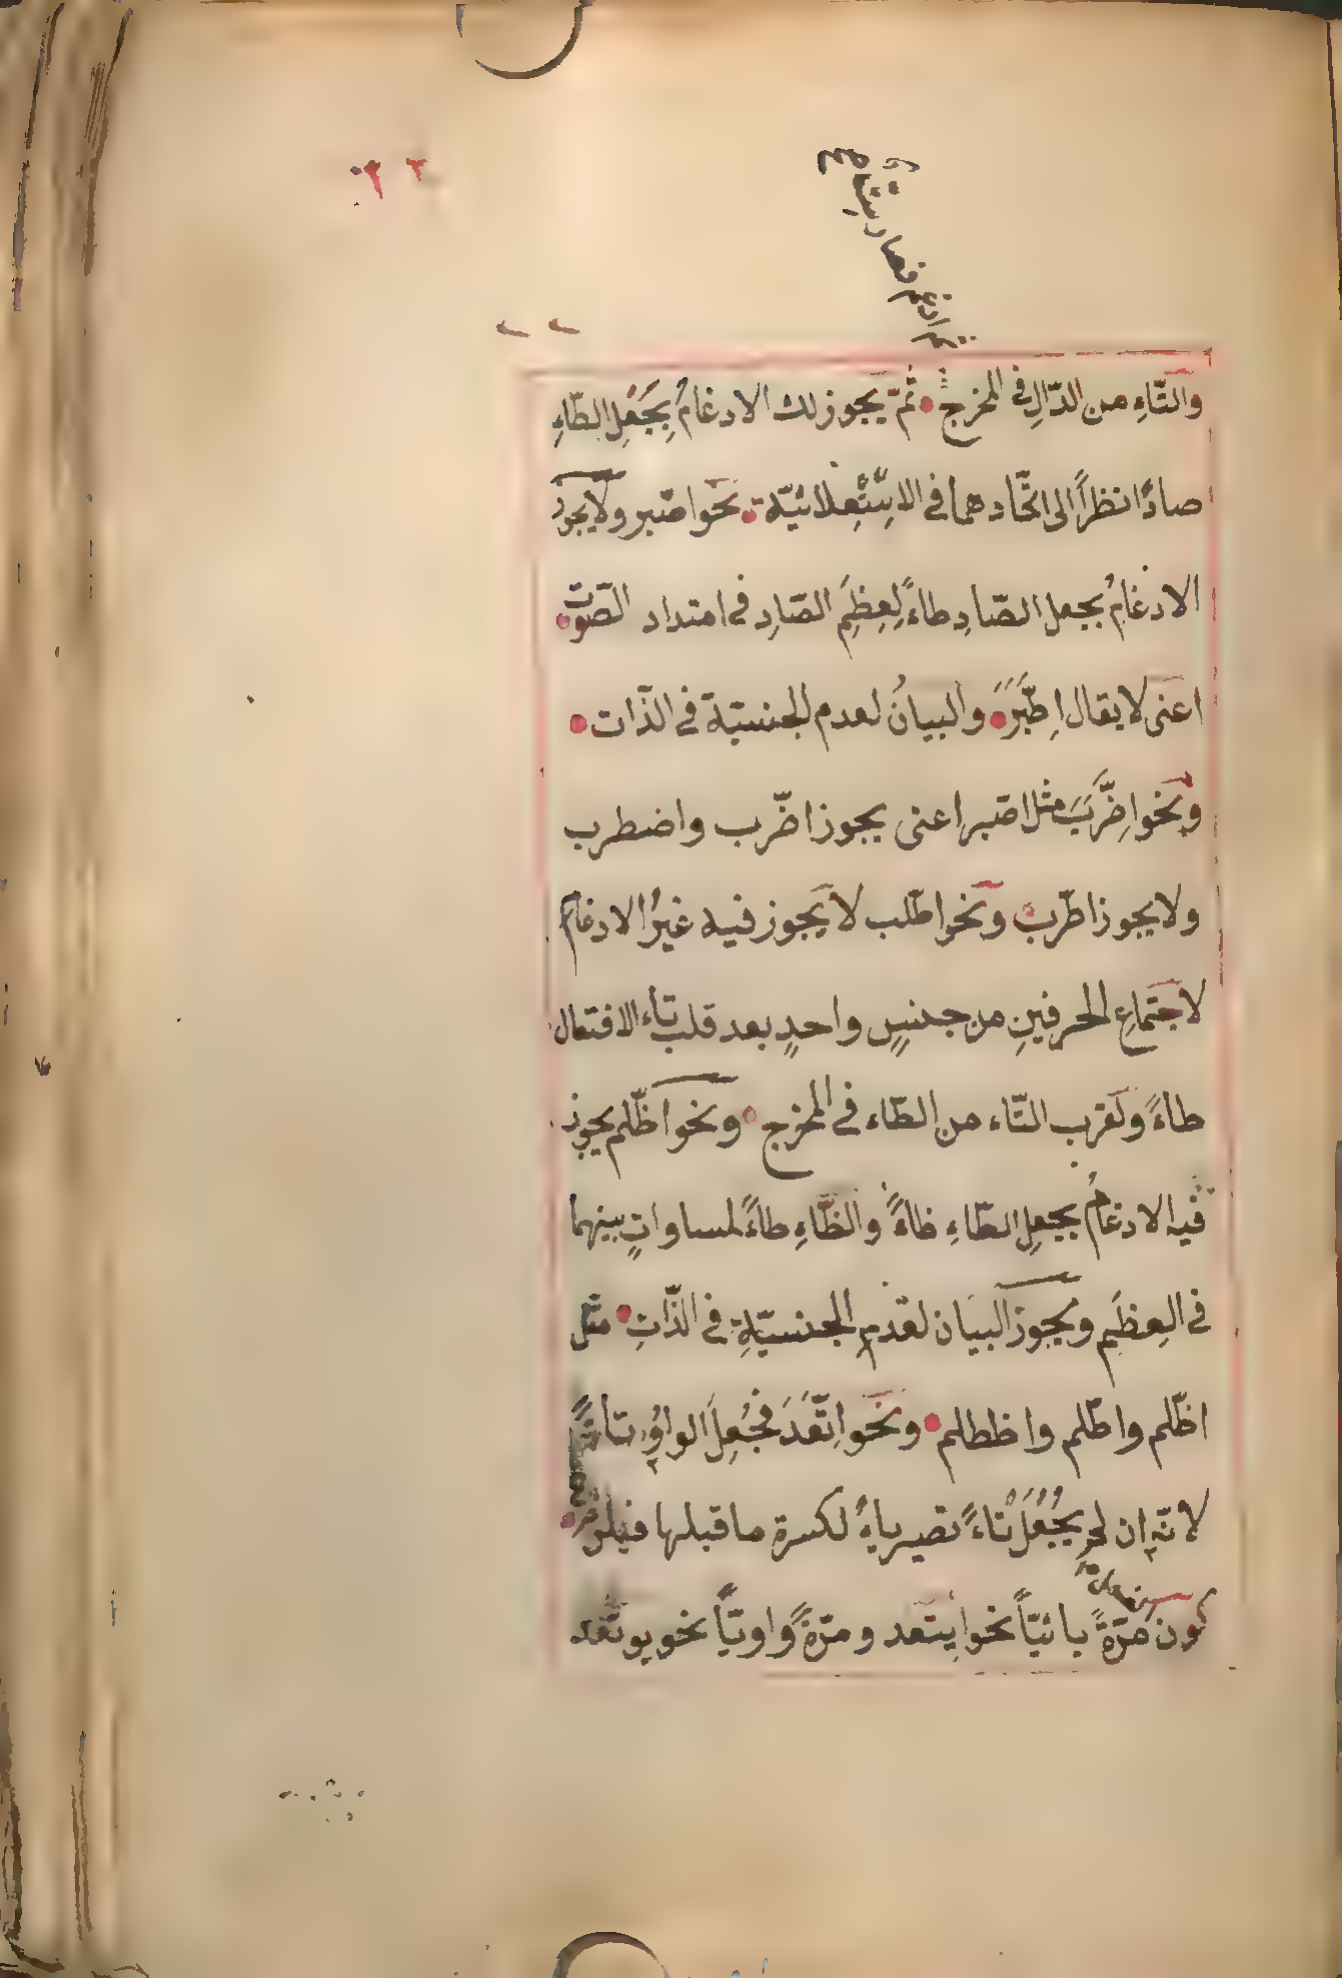 ثم ادغم فصار ستا
والتّاءِ من الدّالِ فى المخرج ثمّ يجوز لك الادغامُ بِجَعْلِ الطّاءِ
صادًا نظراً الى اتّحادهما فى الاسْتِعْلائيّة نحو اصّبر ولا يجوز
الادغامُ بجعل الصّادِ طاءً لِعِظَمِ الصّادِ فى امتداد الصّوت
اعنى لا يقال اِطَّبَرَ والبيانُ لعدم الجنسيّة فى الذّات
ونحو اِضَّرَبَ مثل اصّبر اعنى يجوز اضّرب واضطرب
ولا يجوز اطّرب ونحو اطّلب لا يَجوز فيه غيرُ الادغام
لاجتماعِ الحرفينِ من جنسٍ واحدٍ بعد قلب تاء الافتعال
طاءً ولقرب التّاء من الطّاء فى المخرج ونحو اظّلم يجوز
فيه الادغامُ بجعلِ الطّاءِ ظاءً والظّاءِ طاءً لمساواتٍ بينهما
فى العِظَمِ ويجوز البيَان لعدم الجنسيّةِ فى الذّاتِ مثل
اظّلم واطّلم واظطلم ونَحو اِتَّعَدَ فجُعِلَ الواوُ تاءً
لانّه ان لم يُجْعَلْ تاءً تصير ياءً لكسرة ما قبلها فيلزم
كون مرّةً يائيّاً نحو ايتعد ومرّةً واويّاً نحو يوتَعد